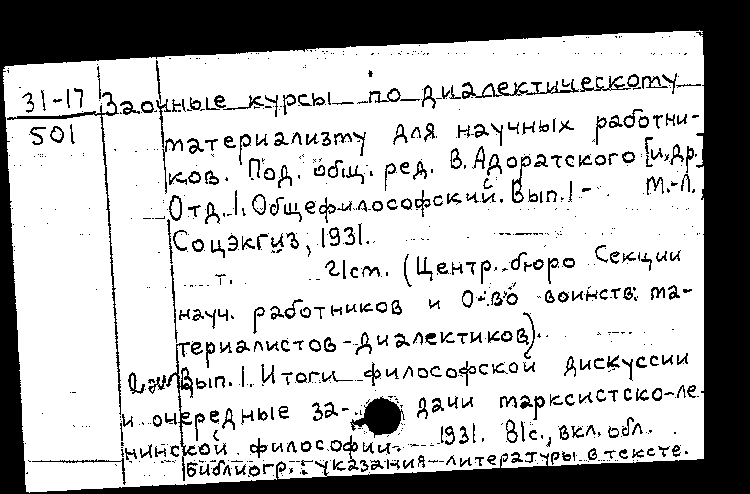 31-17 Заочные курсы по диалектическому
501
материализму для научных работни-
ков. Под. общ. ред. В. Адоратского [и др.]
Отд. 1. Общефилософский. Вып. 1 - М.-Л.,
Соцэкгиз, 1931.
т. 21см. (Центр. бюро Секции
науч. работников и О-во воинств. ма-
териалистов-диалектиков).
Вып. 1. Итоги философской дискуссии
и очередные за- дачи марксистско-ле-
нинской философии. 1931. 81с., вкл. обл.
Библиогр.: указания литературы в тексте.